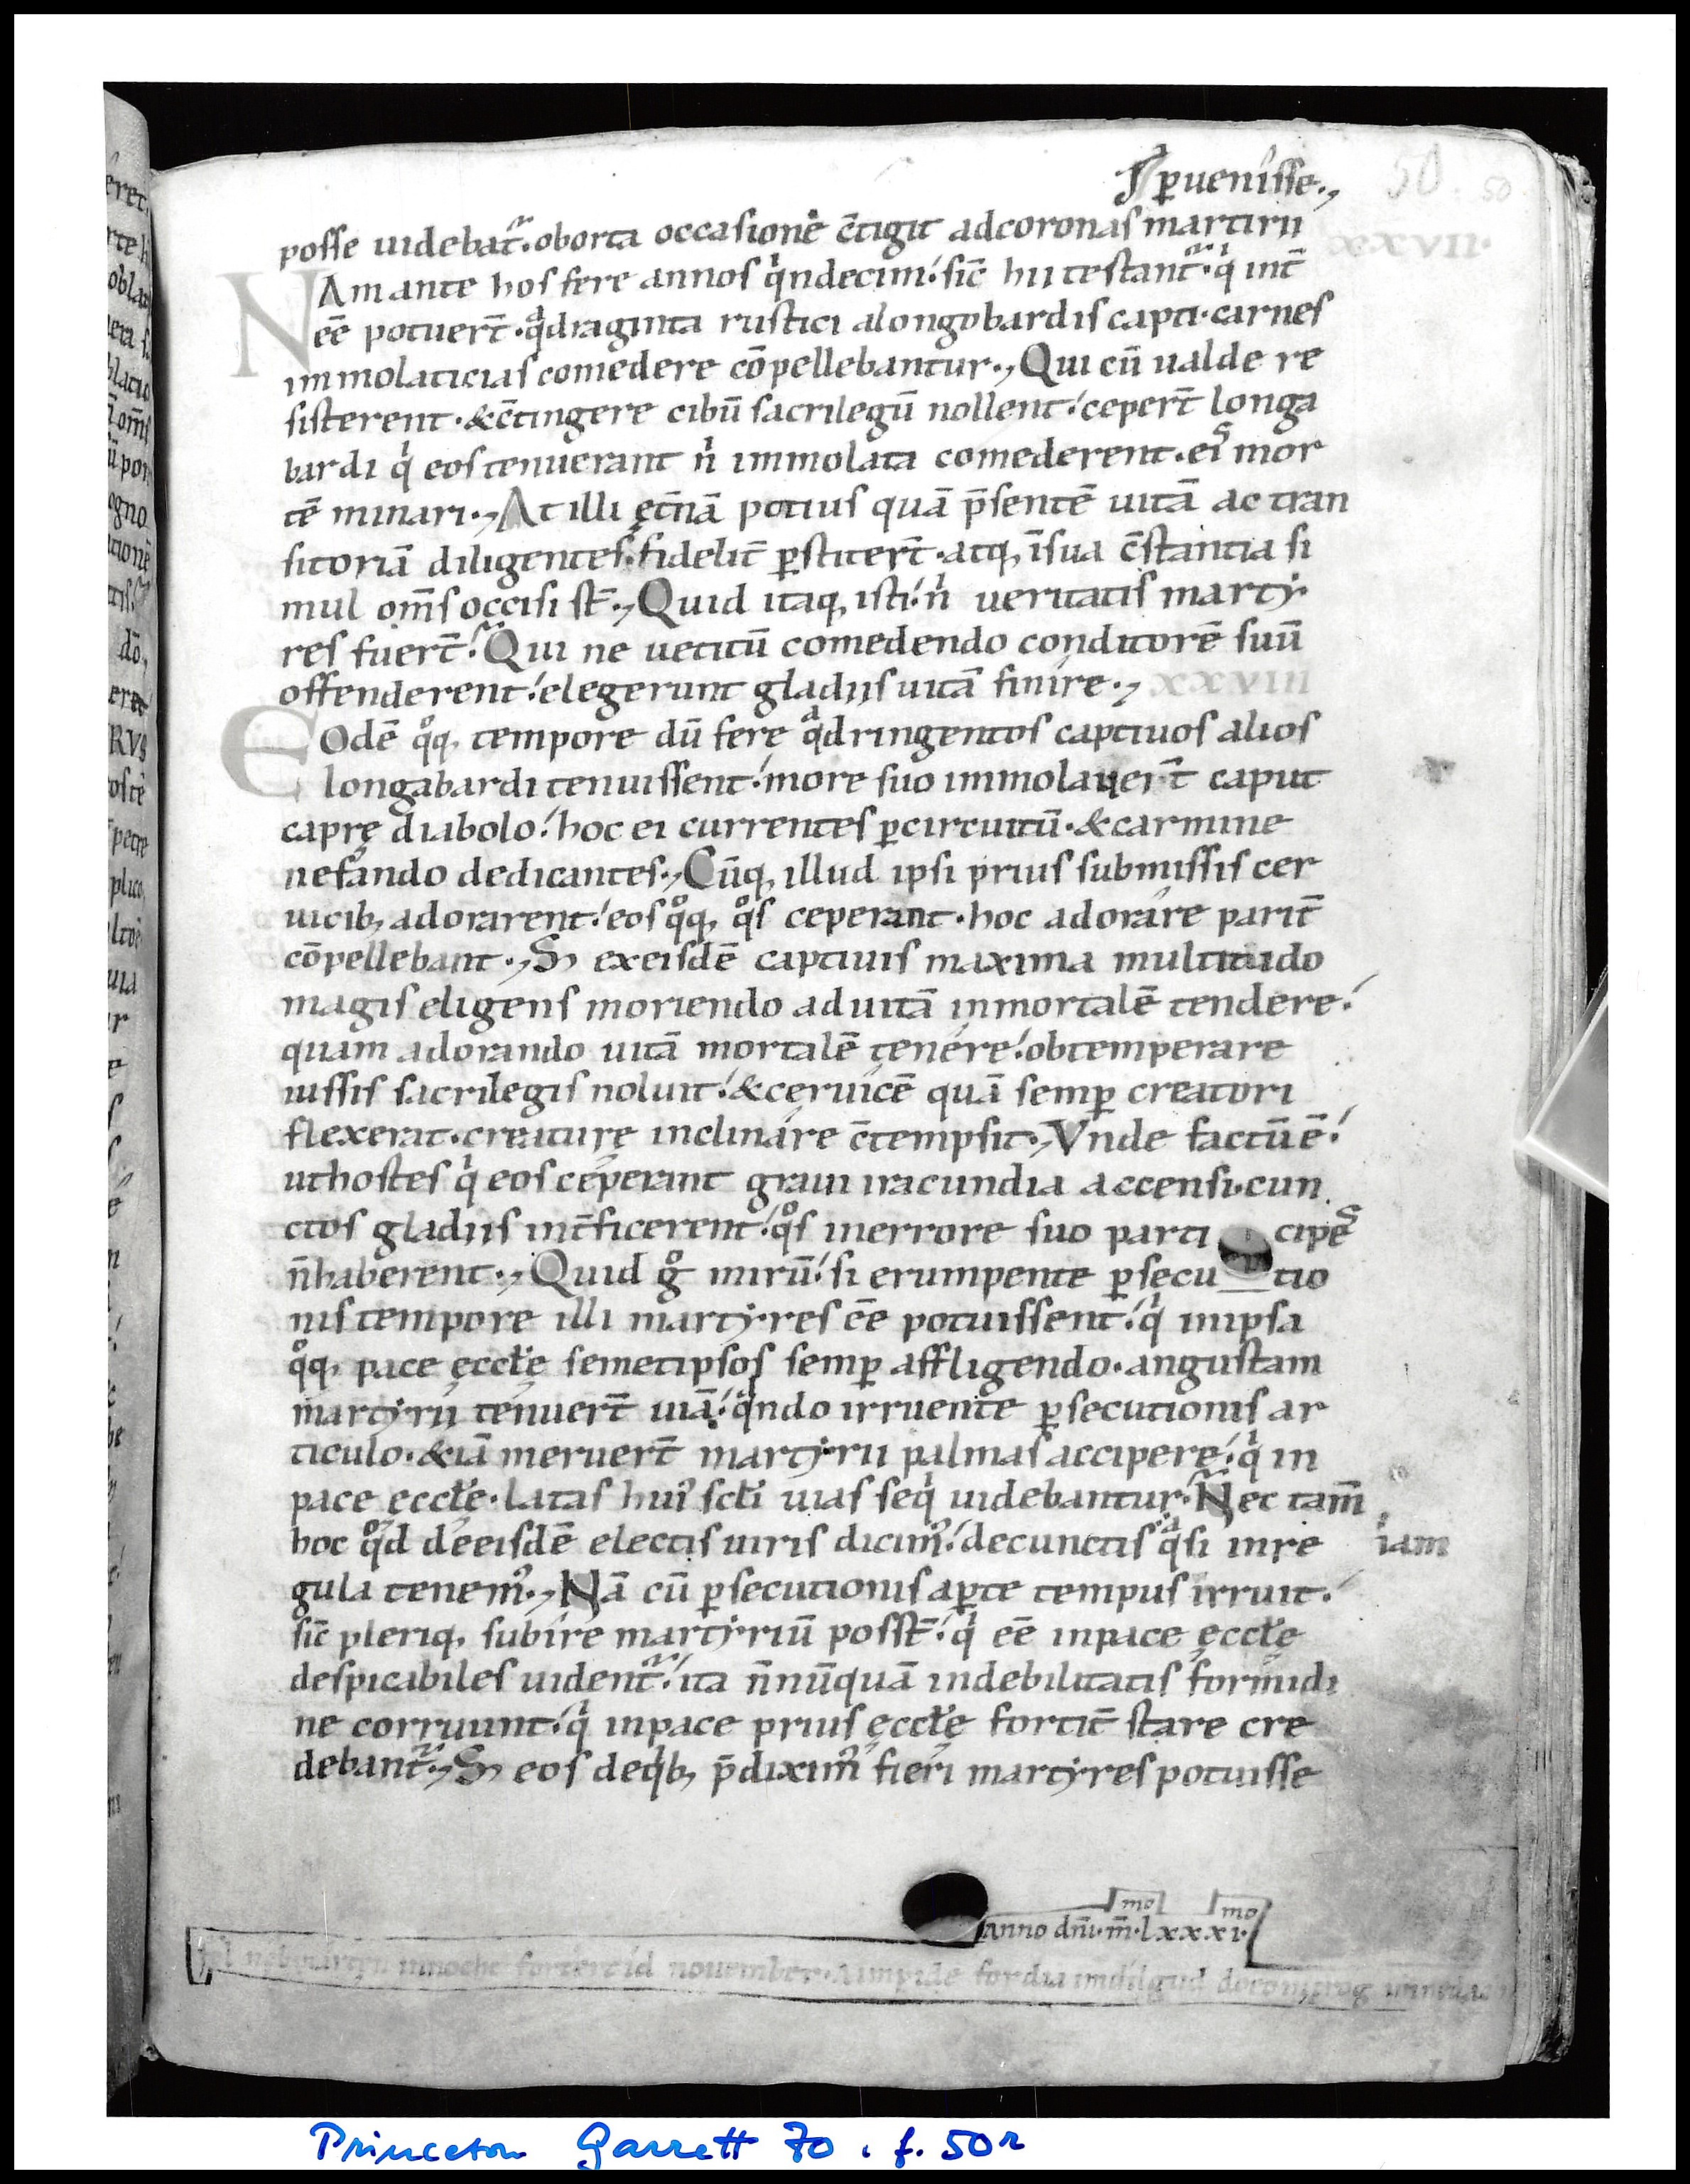 ꝑuenisse.,
50. 50
posse uidebat̃. oborta occasionẽ c̃tigit adcoronas martirii
XXVII.
NAm ante hos fere annos qͥndecim. sic̃ hii testant̃. qͥ int̃
eẽ potuer̃t. qᵃdraginta rustici alongobardis capti. carnes
immolaticias comedere cõpellebantur., Qui cũ ualde re
sisterent. &c̃tingere cibũ sacrilegũ nollent. ceper̃t longa
bardi qͥ eos tenuerant nͥ immolata comederent. eis mor
tẽ minari., At illi ęt̃nã potius quã p̃sentẽ uitã ac tran
sitoriã diligentes. fidelit̃ ꝑstiter̃t. atq, ĩsua c̃stantia si
mul om̃s occisi st̃., Quid itaq, isti. nͥ ueritatis marty
res fuer̃t. Qui ne uetitũ comedendo conditorẽ suũ
offenderent. elegerunt gladiis uitã finire., XXVIII
EOdẽ qͦq, tempore dũ ferę qᵃdringentos captiuos alios
longabardi tenuissent. more suo immolauer̃t caput
caprę diabolo. hoc ei currentes ꝑcircuitũ. &carmine
nefando dedicantes., Cũq, illud ipsi prius submissis cer
uicib, adorarent. eos qͦq, qͦs ceperant. hoc adorare parit̃
cõpellebant., S, exeisdẽ captiuis maxima multitudo
magis eligens moriendo aduitã inmortalẽ tendere.
quam adorando uitã mortalẽ tenere. obtemperare
iussis sacrilegis noluit. &ceruicẽ quã semꝑ creatori
flexerat. creaturę inclinare c̃tempsit., Vnde factũ ẽ.
uthostes qͥ eos ceperant graui iracundia accensi. cun
ctos gladiis int̃ficerent. qͦs inerrore suo parti cipes
ñhaberent., Quid gͦ mirũ. si erumpente ꝑsecu tio
nis tempore illi martyres eẽ potuissent. qͥ inipsa
qͦq, pace ęccłę semetipsos semꝑ affligendo. angustam
martyrii tenuer̃t uiã. qᵃndo irruente ꝑsecutionis ar
ticulo. &iã meruer̃t martyrii palmas accipere. qͥ in
pace ęccłę. latas huiꝰ scłi uias seqͥ uidebantur. Nec tam̃
hoc qͦd deeisdẽ electis uiris dicimꝰ. decunctis qᵃsi inre iam
gula tenemꝰ., Nã cũ ꝑsecutionis aꝑte tempus irruit.
sic̃ pleriq, subire martyriũ posst̃. qͥ eẽ inpace ęccłę
despicabiles uident̃. ita ñnũquã indebilitatis formidi
ne corruunt. qͥ inpace prius ęccłę fortit̃ stare cre
debant̃., S, eos deqͥb, p̃diximꝰ fieri martyres potuisse
Anno dñi. m̃. lxxxi.
mo mo
nouember.
Princeton Garrett 70, f. 50r